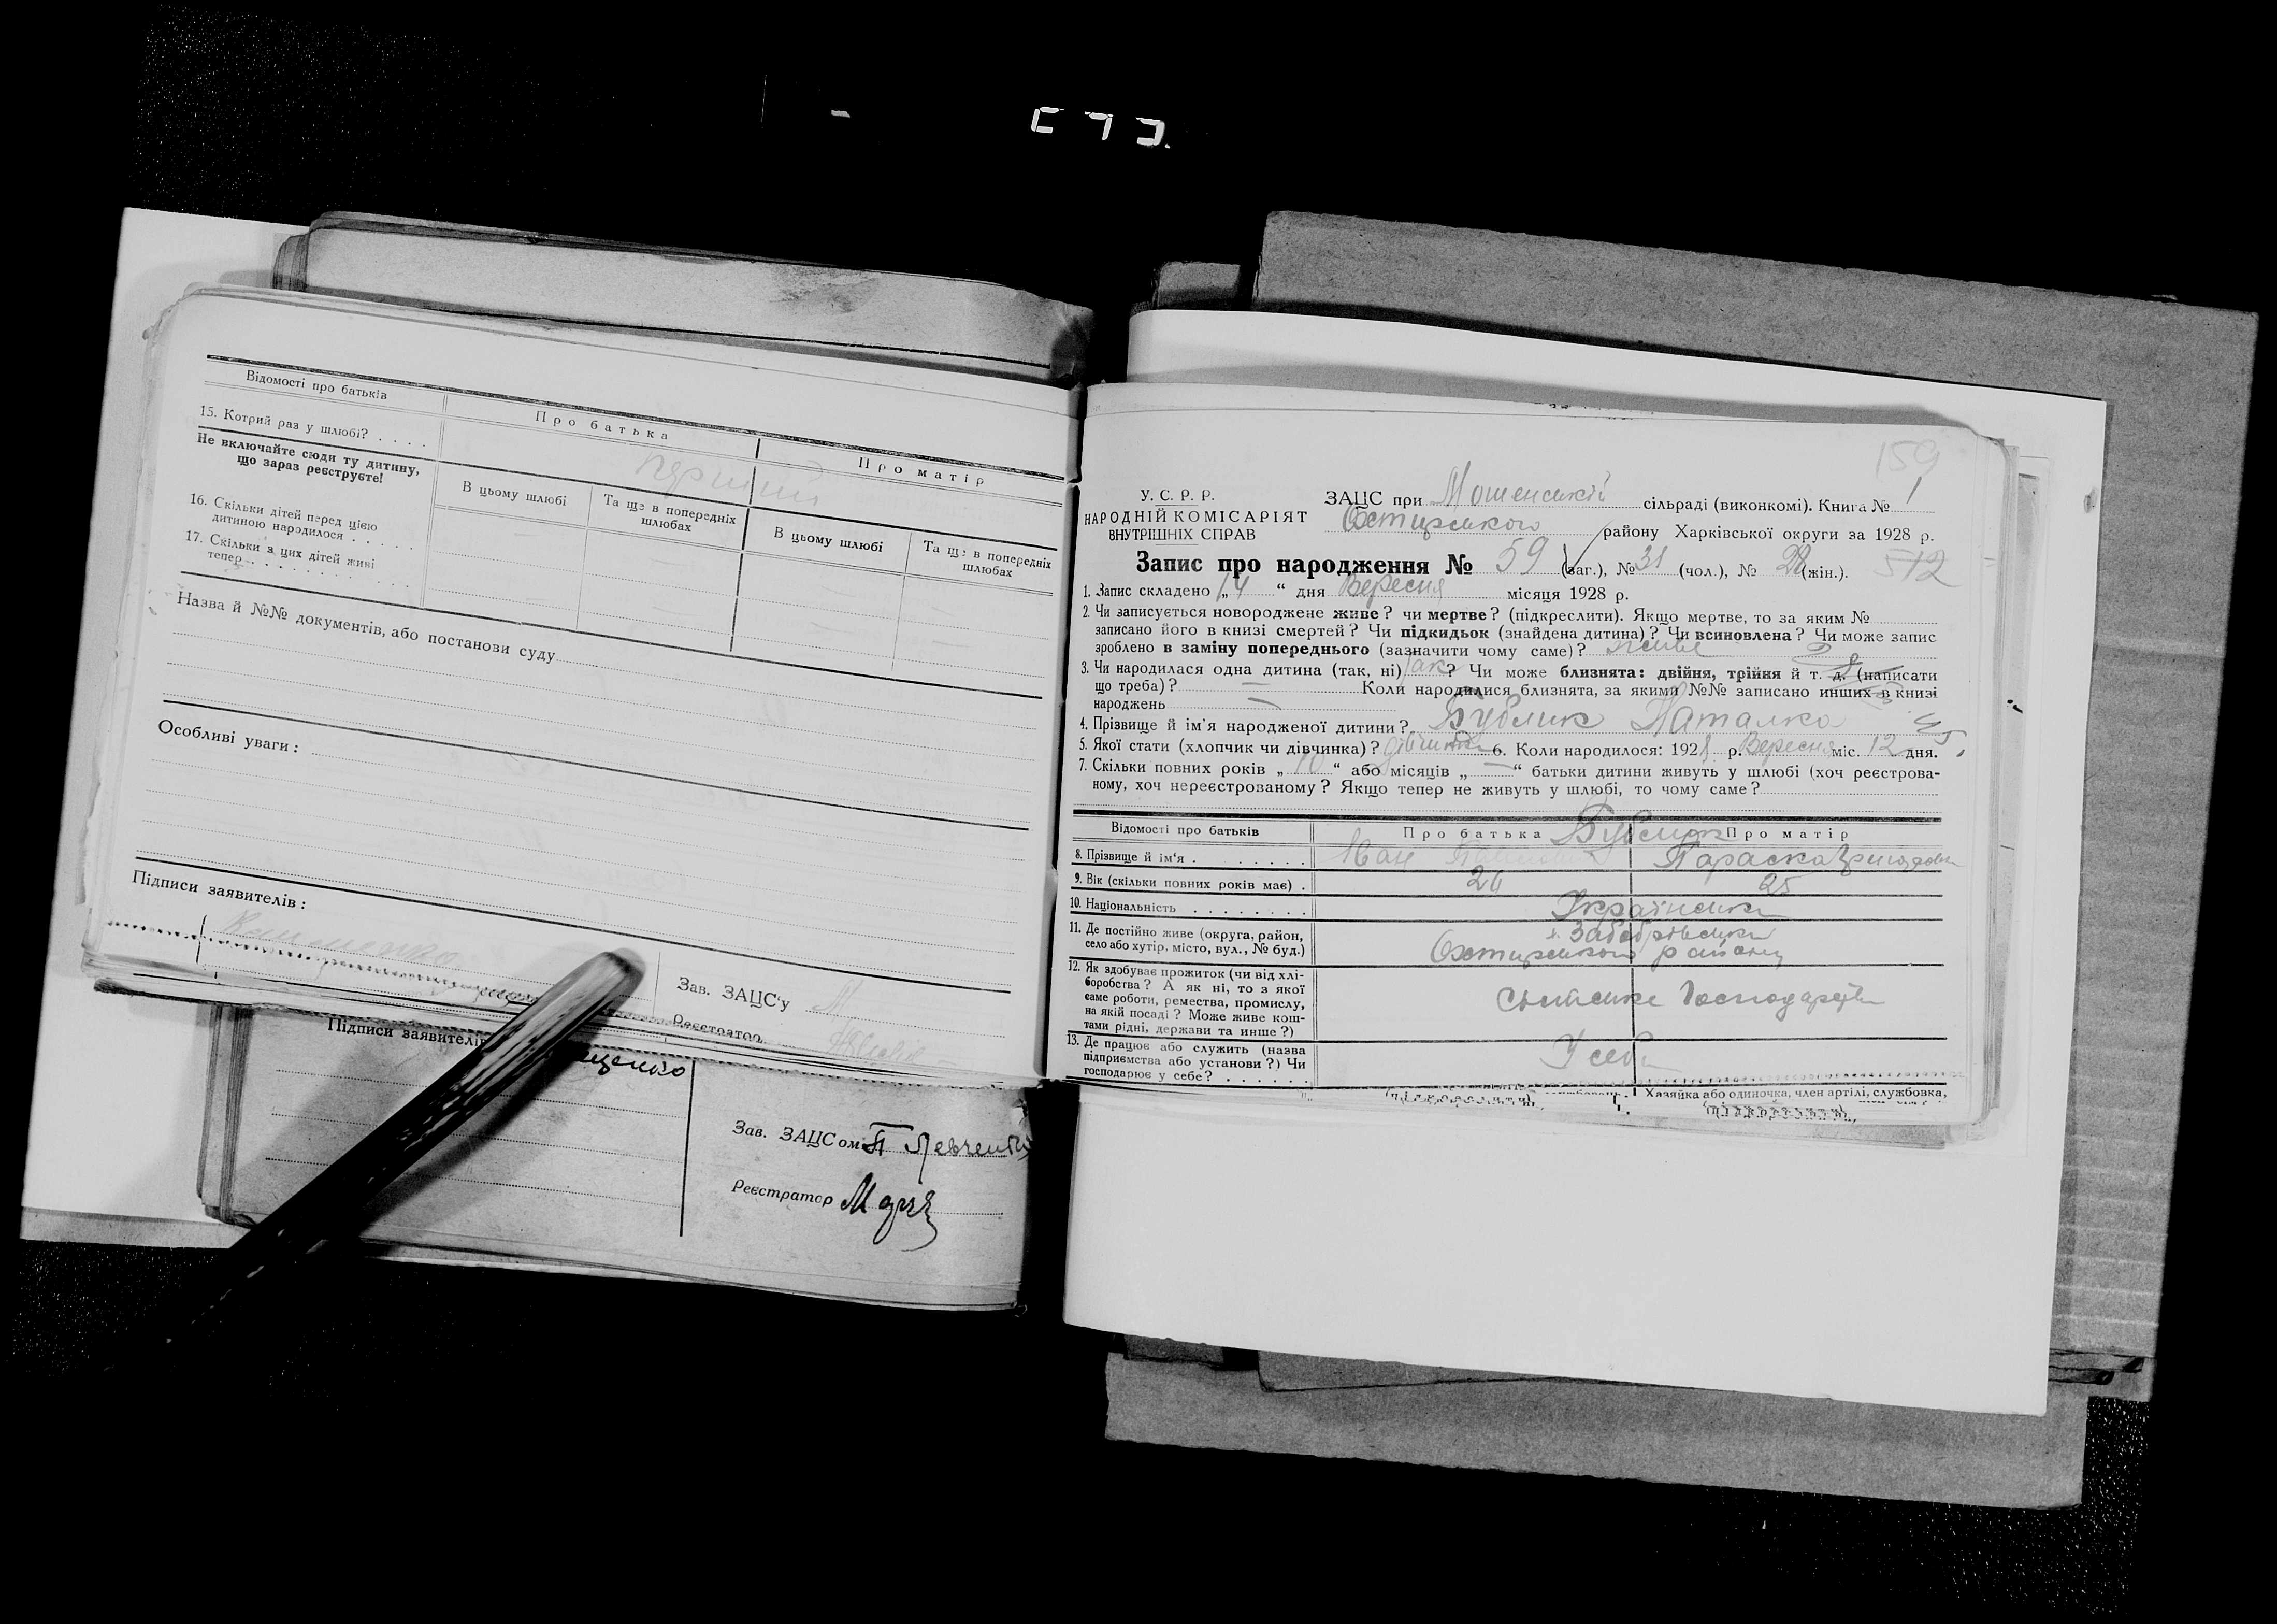 Відомості про батьків
Про батька
Про матір
15. Котрий раз у шлюбі? . . . .
перший
Не включайте сюди ту дитину,
що зараз реєструєте!
В цьому шлюбі
Та ще в попередніх
шлюбах
В цьому шлюбі
Та ще в попередніх
шлюбах
16. Скільки дітей перед цією
дитиною народилося . . . . .
17. Скільки з цих дітей живі
тепер . . . . . . . . . . .
Назва й №№ документів, або постанови суду
Особливі уваги:
Підписи заявителів:
Зав. ЗАЦС'у
Реєстратор
Підписи заявителів
щенко
Зав. ЗАЦСом П Левченко
Реєстратор
159
У. С. Р. Р.
НАРОДНІЙ КОМІСАРІЯТ
ВНУТРІШНІХ СПРАВ
ЗАЦС при Мошенській сільраді (виконкомі). Книга № 1
Охтирського району Харківської округи за 1928 р.
Запис про народження № 59 (заг.), № 31 (чол.), № 28 (жін.). 512
1. Запис складено „14“ дня Вересня місяця 1928 р.
2. Чи записується новороджене живе? чи мертве? (підкреслити). Якщо мертве, то за яким №
записано його в книзі смертей? Чи підкидьок (знайдена дитина)? Чи всиновлена? Чи може запис
зроблено в заміну попереднього (зазначити чому саме)? живе
3. Чи народилася одна дитина (так, ні) так? Чи може близнята: двійня, трійня й т. д. (написати
що треба)? — Коли народилися близнята, за якими №№ записано инших в книзі
народжень —
4. Прізвище й ім'я народженої дитини? Бублик Наталка
5. Якої стати (хлопчик чи дівчинка)? дівчинка 6. Коли народилося: 1928 р. Вересня міс. 12 дня.
7. Скільки повних років „10“ або місяців „—“ батьки дитини живуть у шлюбі (хоч реєстрова-
ному, хоч нереєстрованому? Якщо тепер не живуть у шлюбі, то чому саме?
Відомості про батьків
Про батька
Бублик
Про матір
8. Прізвище й ім'я . . . . . . . .
Іван
Параска
9. Вік (скільки повних років має) .
25
10. Національність . . . . . . . .
Українська
11. Де постійно живе (округа, район,
село або хутір, місто, вул., № буд.)
Охтирського району
12. Як здобуває прожиток (чи від хлі-
боробства? А як ні, то з якої
саме роботи, ремества, промислу,
на якій посаді? Може живе кош-
тами рідні, держави та инше?)
Сільське Господарство
13. Де працює або служить (назва
підприємства або установи?) Чи
господарює у себе? . . . . . .
У себе
Хазяйка або одиночка, член артілі, службовка,